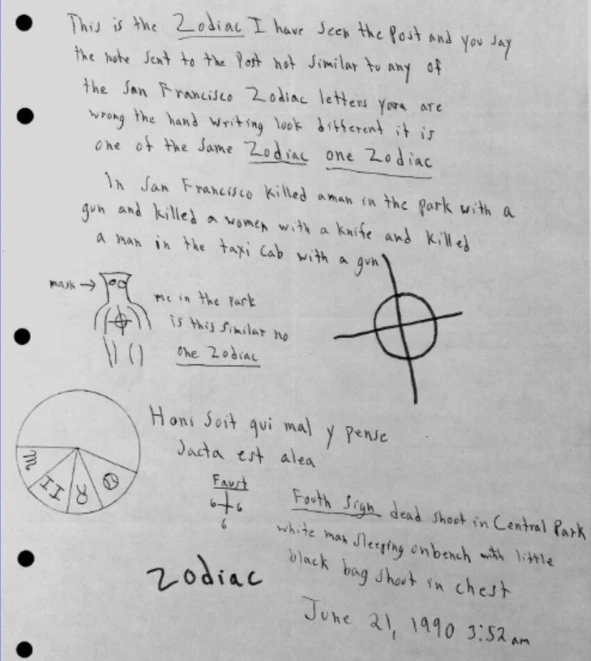 This is the Zodiac I have seen the Post and you say
the note sent to the Post not similar to any of
the San Francisco Zodiac letters your are
wrong the hand writing look different it is
one of the same Zodiac one Zodiac
In San Francisco killed a man in the park with a
gun and killed a women with a knife and killed
a man in the taxi cab with a gun
mask →
me in the park
is this similar no
one Zodiac
Honi soit qui mal y pense
Jacta est alea
Faust
6 6
6
Fouth Sign dead shoot in Central Park
white man sleeping on bench with little
black bag shoot in chest
Zodiac
June 21, 1990 3:52 am